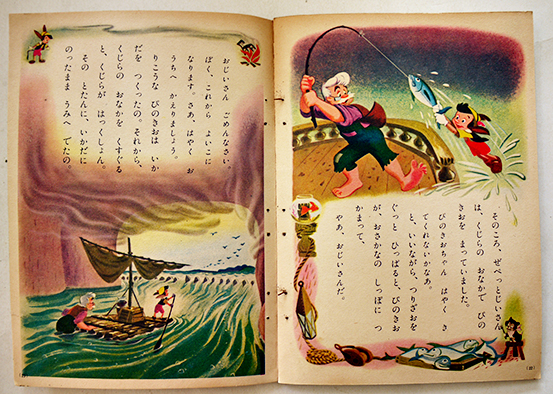 そのころ、ぜぺっとじいさん
は、くじらの おなかで ぴの
きおを まっていました。
ぴのきおちゃん はやく き
てくれないかなあ。
と、いいながら、つりざおを
ぐっと ひっぱると、ぴのきお
が、おさかなの しっぽに つ
かまって、
やあ、おじいさんだ。
おじいさん ごめんなさい。
ぼく、これから よいこに
なります。さあ、はやく お
うちへ かえりましょう。
りこうな ぴのきおは いか
だを つくったの。それから、
くじらの おなかを くすぐる
と、くじらが はっくしょん。
その とたんに、いかだに
のったまま うみへ でたの。